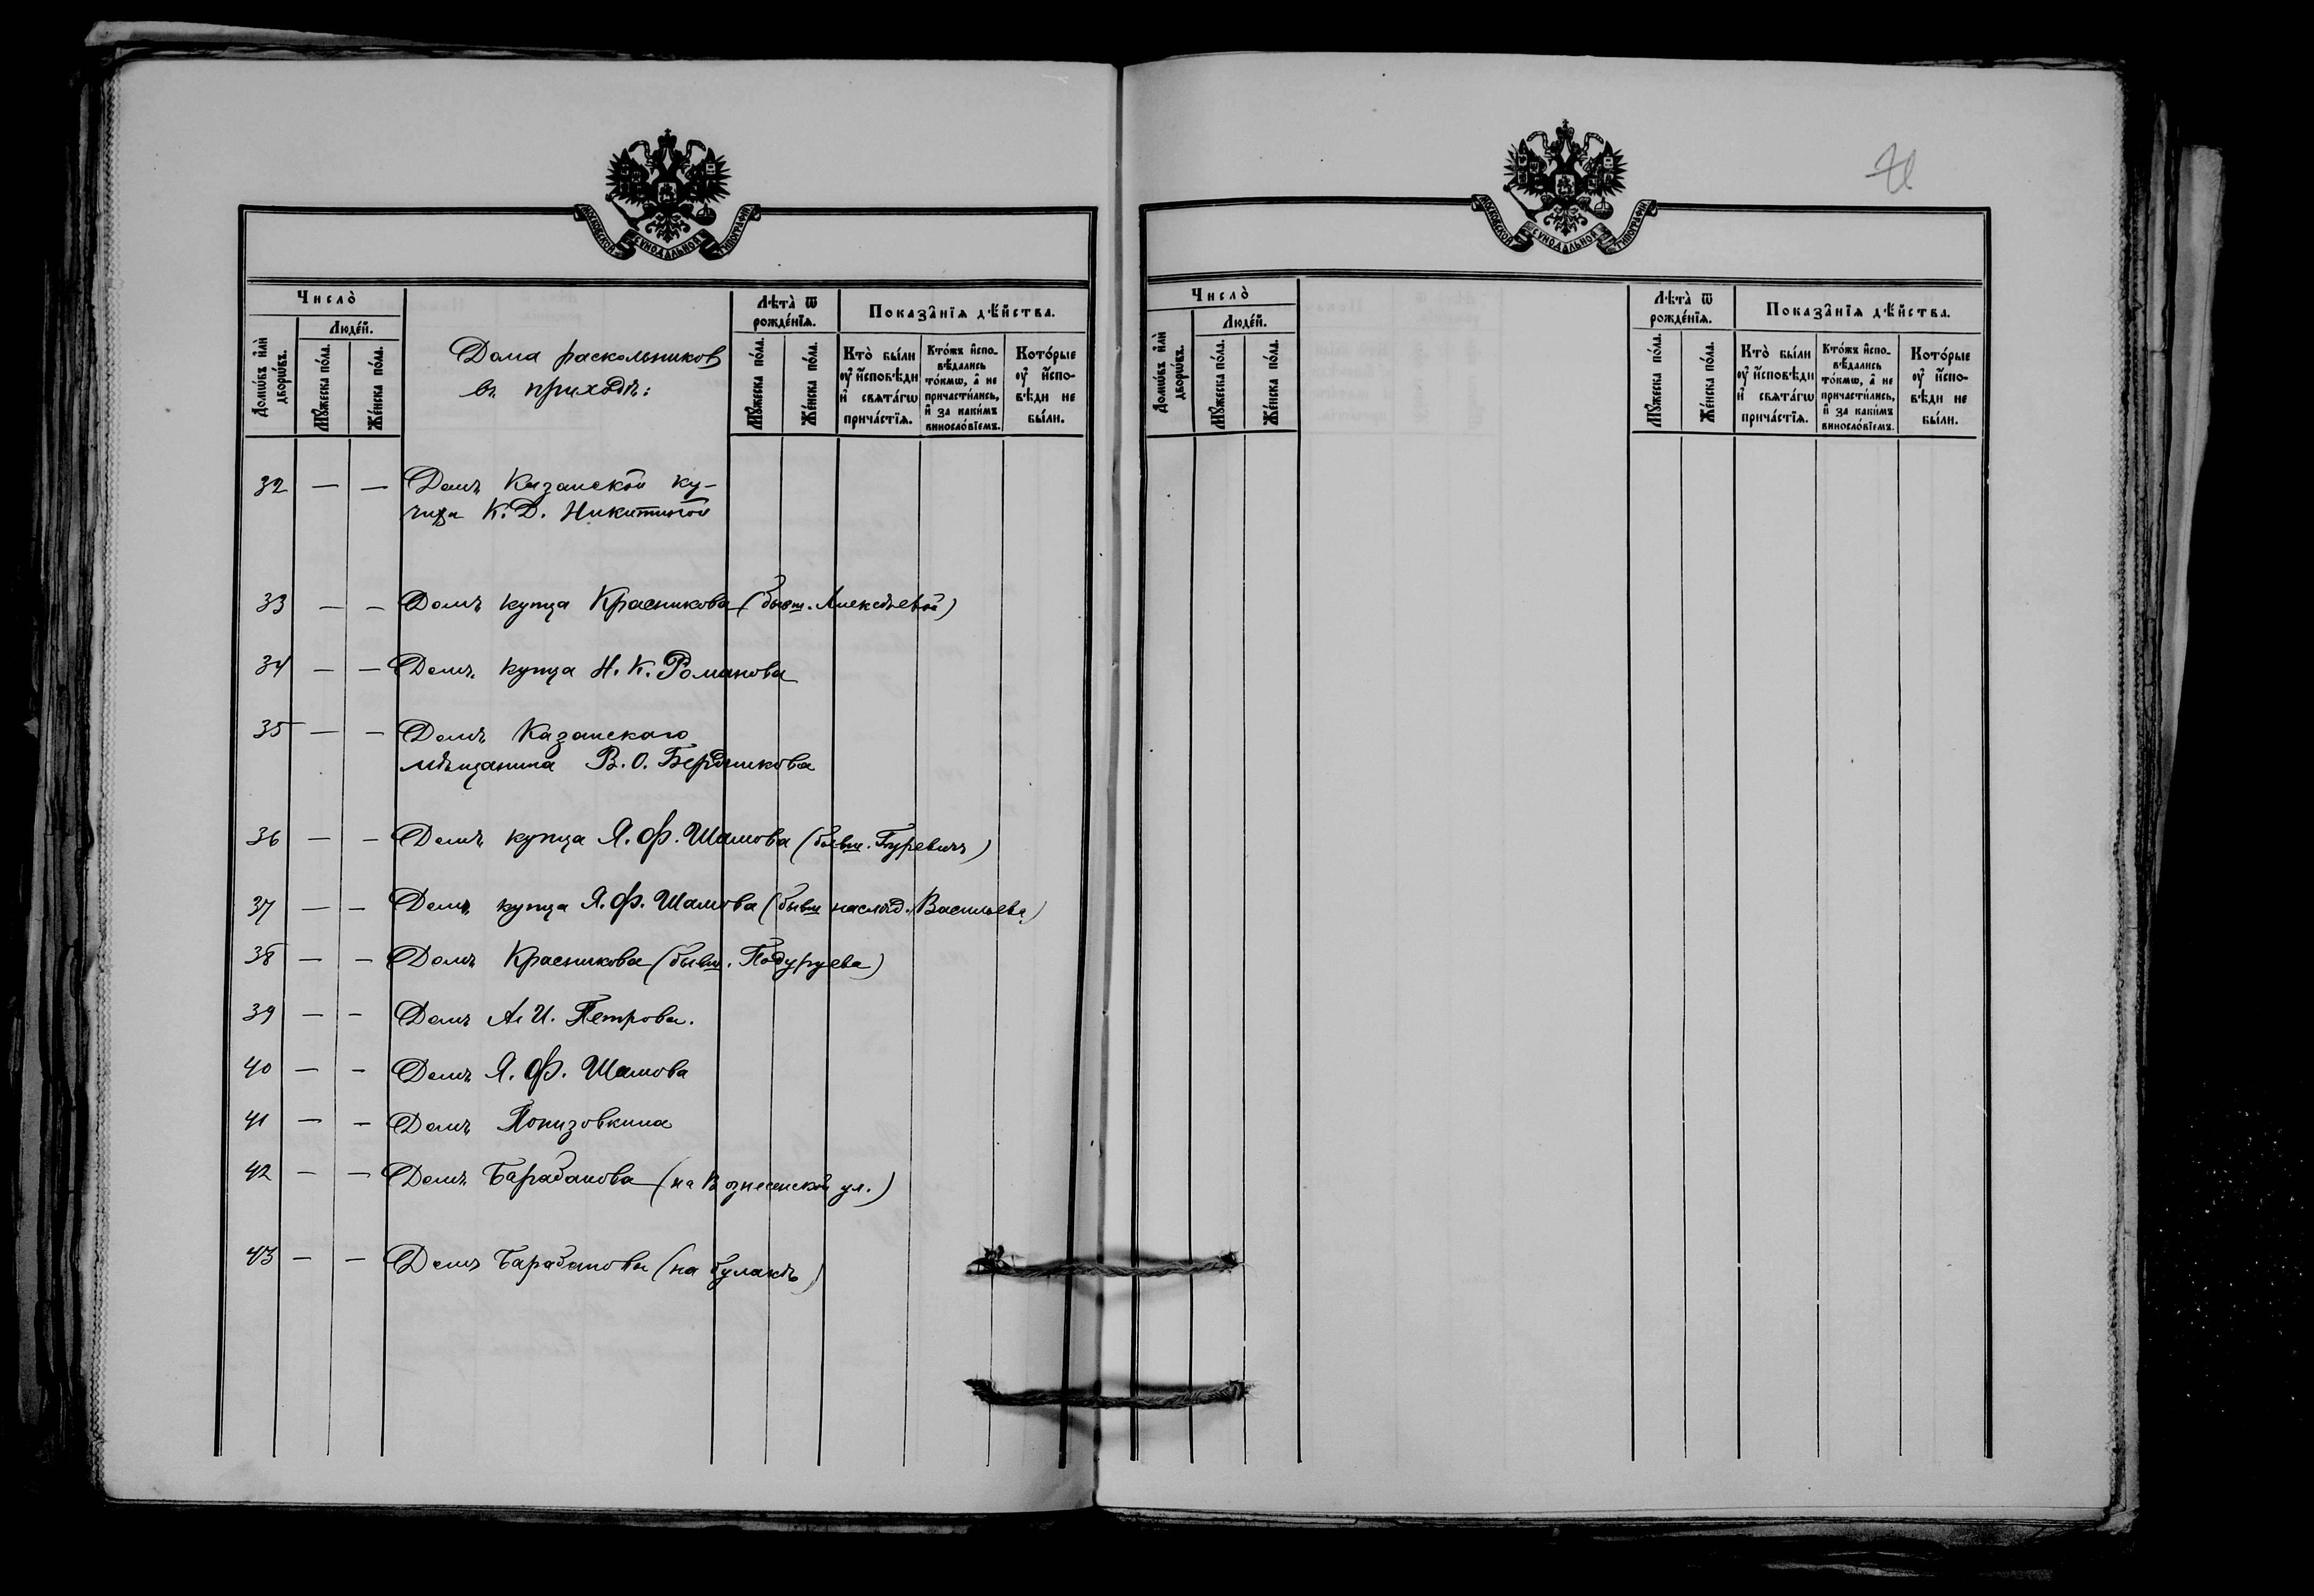 МОСКОВСКОЙ СѴНОДАЛЬНОЙ ТИПОГРАФІИ
Число̀
Домѡ́въ и҆лѝ дворѡ́въ.
Люде́й.
Мꙋ́жеска по́ла.
Же́нска по́ла.
Дома раскольников
въ приходѣ:
Лѣ́та ѿ рожде́нїѧ.
Мꙋ́жеска по́ла.
Же́нска по́ла.
Показа̑нїѧ дѣ́йства.
Кто̀ бы́ли ᲂу҆ и҆сповѣ́ди и҆ свѧта́гѡ прича́стїѧ.
Кто́жъ и҆спо-вѣ́дались то́кмѡ, а҆ не причасти́лись, и҆ за каки́мъ виносло́вїемъ.
Кото́рые ᲂу҆ и҆спо-вѣ́ди не бы́ли.
32 — — Домъ Казанской ку-
чихи К. Д. Никитиной
33 — — Домъ купца Красникова (бывш. Алексѣевой)
34 — — Домъ купца Н. К. Романова
35 — — Домъ Казанскаго
мѣщанина В. О. Бердникова
36 — — Домъ купца Я. Ф. Шамова (бывш. Гуревичъ)
37 — — Домъ купца Я. Ф. Шамова (бывш наслѣд. Васильева)
38 — — Домъ Красникова (бывш. Подуруева)
39 — — Домъ А. И. Петрова.
40 — — Домъ Я. Ф. Шамова
41 — — Домъ Понизовкина
42 — — Домъ Барабанова (на Вознесенской ул.)
43 — — Домъ Барабанова (на булакѣ)
МОСКОВСКОЙ СѴНОДАЛЬНОЙ ТИПОГРАФІИ
Число̀
Домѡ́въ и҆лѝ дворѡ́въ.
Люде́й.
Мꙋ́жеска по́ла.
Же́нска по́ла.
Лѣ́та ѿ рожде́нїѧ.
Мꙋ́жеска по́ла.
Же́нска по́ла.
Показа̑нїѧ дѣ́йства.
Кто̀ бы́ли ᲂу҆ и҆сповѣ́ди и҆ свѧта́гѡ прича́стїѧ.
Кто́жъ и҆спо-вѣ́дались то́кмѡ, а҆ не причасти́лись, и҆ за каки́мъ виносло́вїемъ.
Кото́рые ᲂу҆ и҆спо-вѣ́ди не бы́ли.